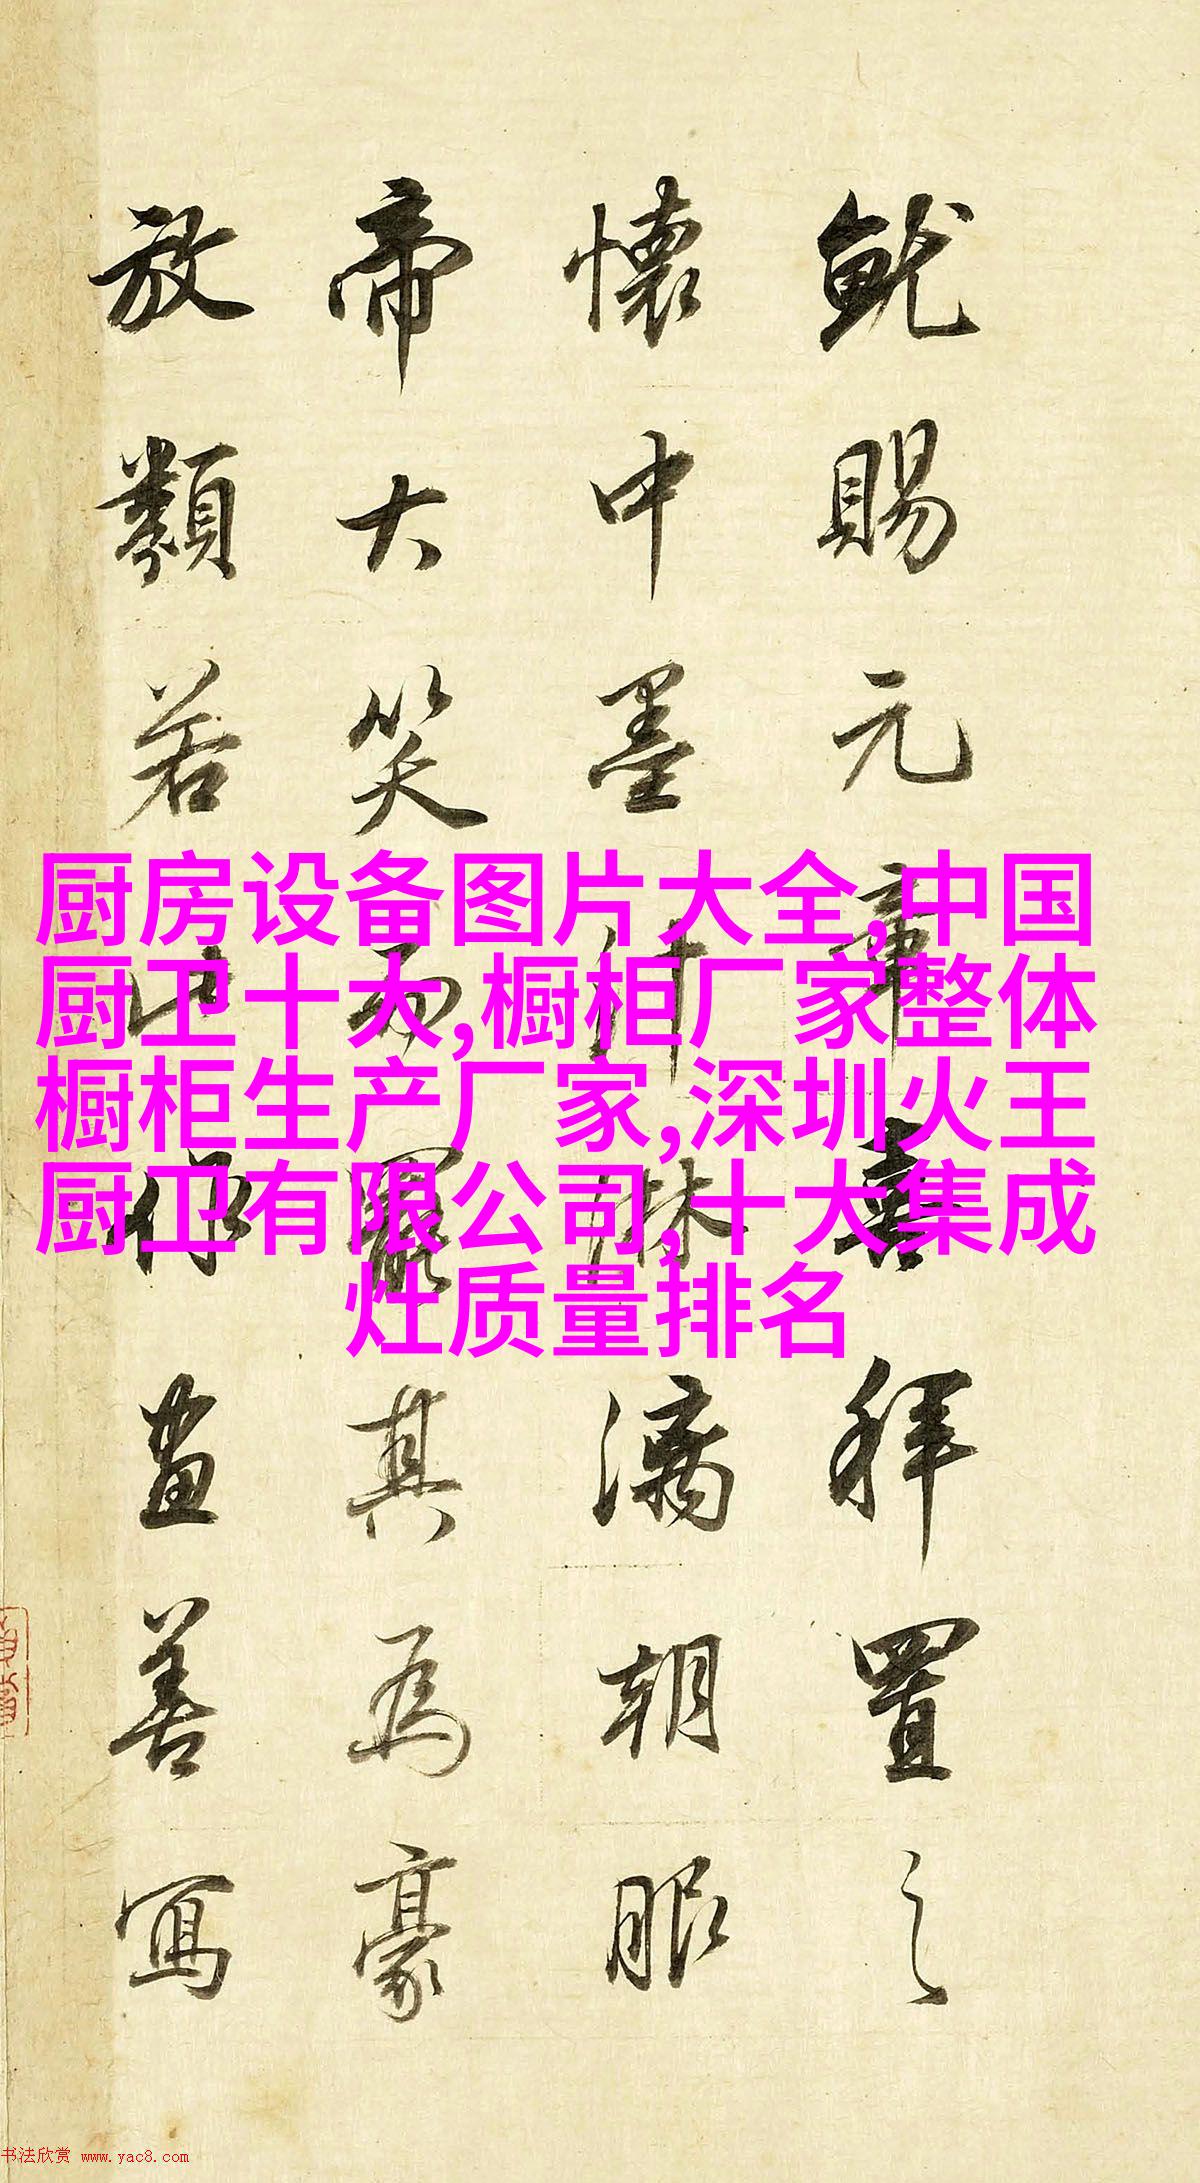 厨房设备图片大全,中国
厨卫十大,橱柜厂家整体
橱柜生产厂家,深圳火王
厨卫有限公司,十大集成
灶质量排名
就賜元章喜拜置之
懷中墨汁淋漓朝服
帝大笑而罷其為豪
放類若此作畫善寫
书法欣赏 www.yac8.com